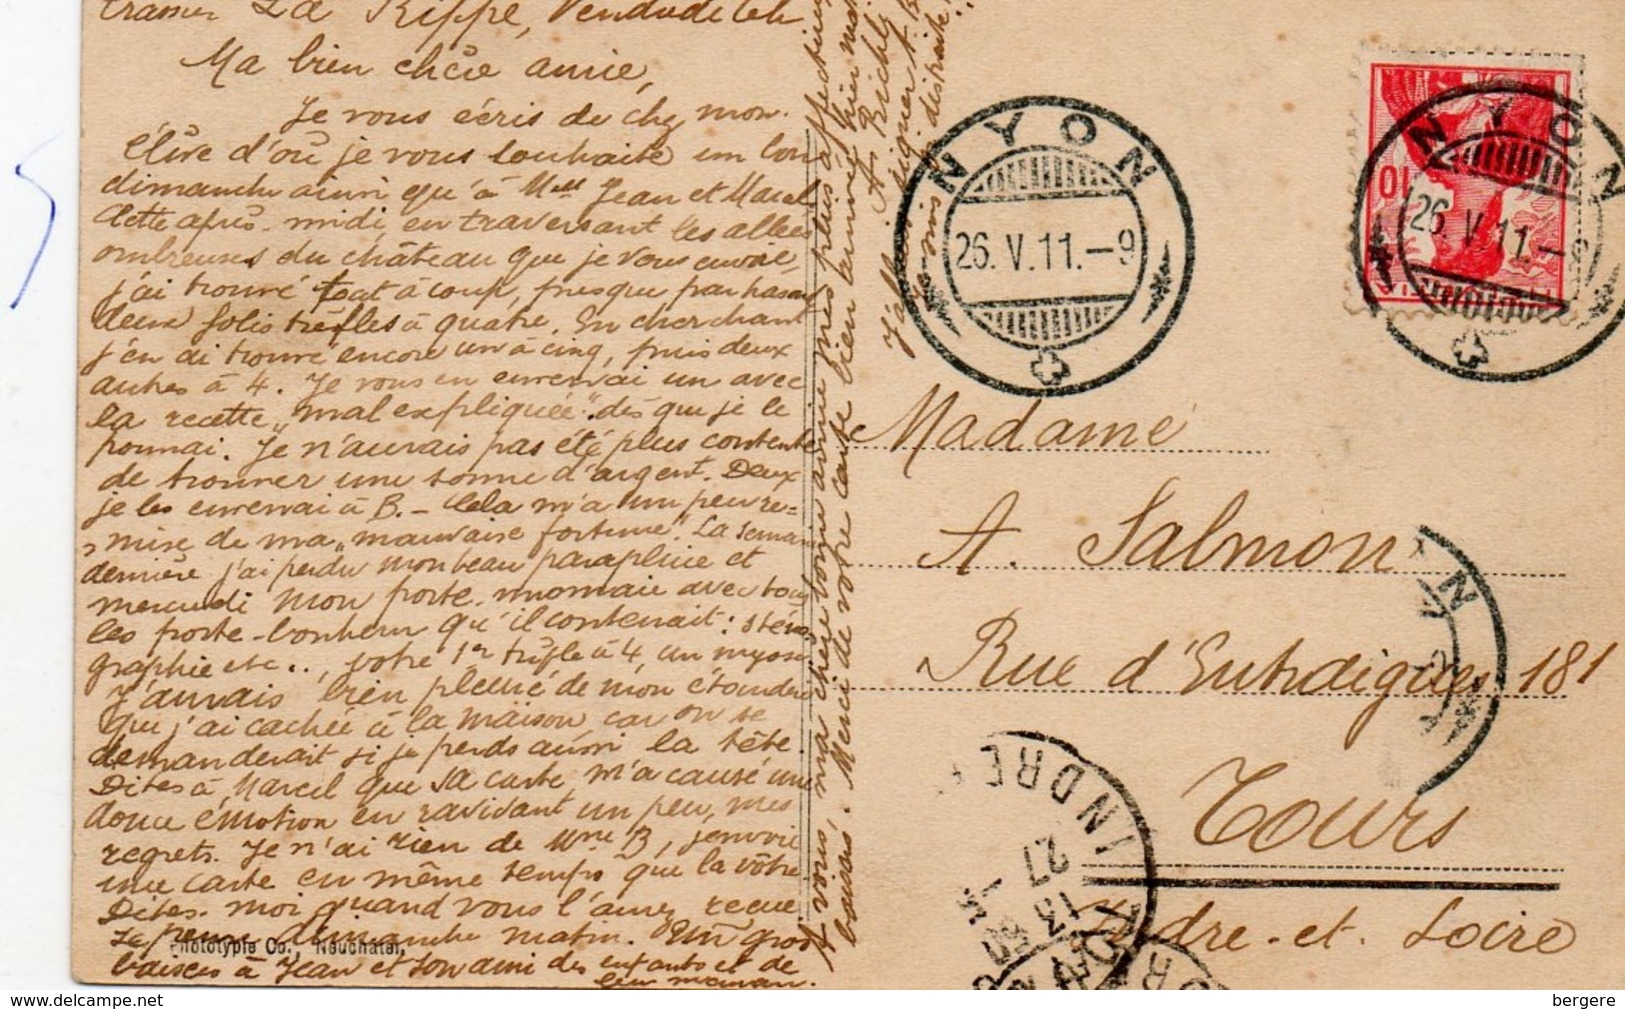 La Rippe, Vendredi
Ma bien chère amie,
Je vous écris de chez mon
élève d'où je vous souhaite un bon
dimanche ainsi qu'à Jean et Marcel
Cette après-midi, en traversant les allées
ombreuses du château que je vous envoie,
j'ai trouvé tout à coup, presque par hasard
deux jolis trèfles à quatre. En cherchant
j'en ai trouvé encore un à cinq, puis deux
autres à 4. Je vous en enverrai un avec
la recette „mal expliquée" dès que je le
pourrai. Je n'aurais pas été plus contente
de trouver une somme d'argent. Deux
je les enverrai à B. — Cela m'a un peu re=
mise de ma „mauvaise fortune". La semaine
dernière j'ai perdu mon beau parapluie et
mercredi mon porte-monnaie avec tous
les porte-bonheur qu'il contenait: sténo-
graphie etc.., votre 1er trèfle à 4, un myoso
J'aurais bien pleuré de mon étourderie
que j'ai cachée à la maison car on se
demanderait si je perds aussi la tête.
Dites à Marcel que sa carte m'a causé une
douce émotion en ravivant un peu, mes
regrets. Je n'ai rien de Mme B, j'envoie
une carte en même temps que la vôtre
Dites-moi quand vous l'aurez reçue
je pense dimanche matin. Un gros
baiser à Jean et son ami des enfants et de
leur maman.
Phototypie Co., Neuchâtel.
A vous, ma chère bonne amie mes plus affectueux
baisers. Merci de votre carte bien arrivée hier
NYON
26.V.11.-9
NYON
26.V.11.-9
10
Madame
A. Salmon
Rue d'Entraigues 181
Tours
Indre-et-Loire
INDRE
bergere